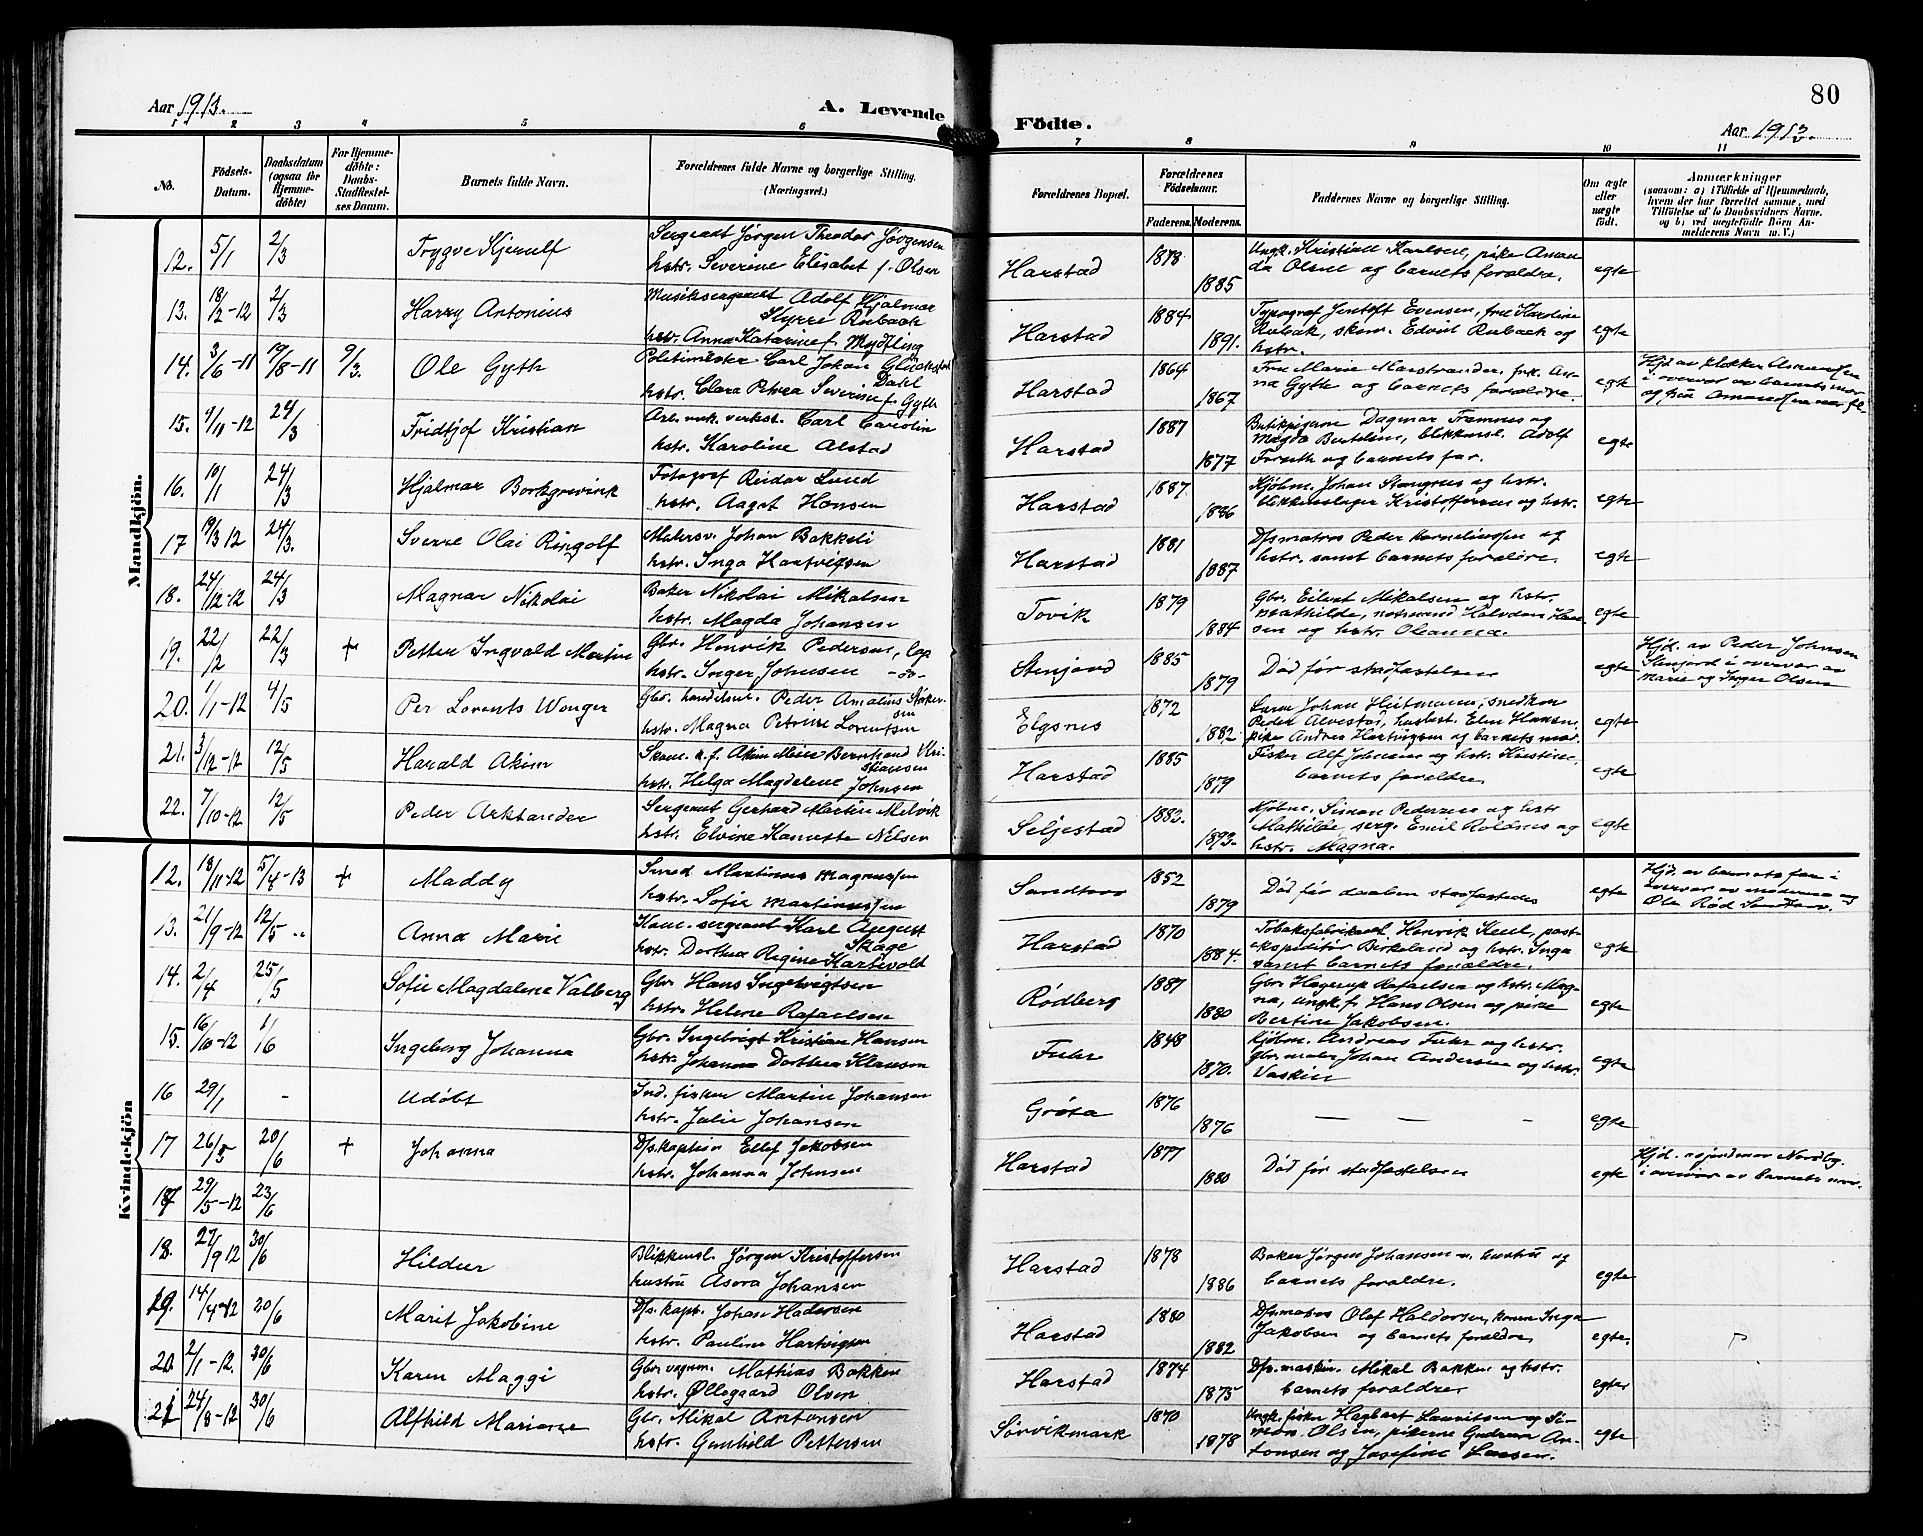 80
Aar 1913.
A. Levende Födte.
Aar 1913.
1 2 3 4 5 6 7 8 9 10 11
No.
Födsels-Datum.
Daabsdatum (ogsaa for Hjemmedöbte)
For Hjemmedöbte: Daabs-Stadfæstelses Datum.
Barnets fulde Navn.
Forældrenes fulde Navne og borgerlige Stilling. (Næringsvei.)
Forældrenes Bopæl.
Forældrenes Födselsaar.
Faderens. Moderens.
Faddernes Navne og borgerlige Stilling.
Om ægte eller uægte född.
Anmærkninger
Mandkjön.
12. 5/1 2/3 Trygve Kjerulf Sergeant Jörgen Theodor Jörgensen Harstad 1878 Ungk. Kristian Karlsen, pike Aman
hstr. Severine Elisabet f. Olsen 1885 da Olsen og barnets foraldre. egte
13. 18/2-12 2/3 Harry Antonius Musiksergeant Adolf Hjalmar Harstad 1884 Typograf Jentoft Evensen, fru Karoline
Styrre Rubach 1891. Rubak, skom. Edvin Rubach og egte
hstr. Anna Katarine f. Mydtling hstr.
14. 3/6-11 19/8-11 9/3. Ole Gyth Politimester Carl Johan Glückstad Harstad 1864 Fru Marie Marstrander, frk. An-
Dahl
hstr. Clara Petrea Severine f. Gyth 1867 na Gyth og barnets foraldre. egte
15. 9/11-12 24/3 Fridtjof Kristian Arb. verkst. Carl Carolin Harstad 1887 Butikpigerne Dagmar Framnes og
hstr. Karoline Alstad 1877 Magda Bertelsen, blikkensl. Adolf egte
Forseth og barnets far.
16. 10/1 24/3 Hjalmar Borkgrevink Fotograf Reidar Lund Harstad 1887 Kjøbm. Johan Stangnes og hstr.
hstr. Aagot Hansen 1886 blikkenslager Kristoffersen og hstr. egte
17 19/3 12 24/3. Sverre Olai Ringolf Malersv. Johan Bakkeli Harstad 1881 Dfsmatros Peder Korneliussen og
hstr. Inga Hartvigsen 1887 hstr. samt barnets foraldre. egte
18. 24/12-12 24/3 Magnar Nikolai Baker Nikolai Mikalsen Tovik 1879 Gbr. Eilert Mikalsen og hstr.
hstr. Magda Johansen 1884 Mathilde, notmand Halvdan Han- egte
sen og hstr. Oleanna.
19. 22/2 22/3 + Petter Ingvald Martin Gbr. Henrik Pedersen, lap Stenjord 1885 Hjd. av Peder Johnsen
hstr. Inger Johnsen -do- 1879 Död før stadfæstelsen egte Stenjord i overvær av
Marie og Inger Olsen
20. 1/1-12 4/5 Per Lorents Wenger Gbr. handelsm. Peder Amalius Elgsnes 1872
hstr. Magna Petrine Lorentsen 1882 egte
21. 3/12-12 12/5 Harald Akim Skom. Akim Bernhard Kri- Harstad 1885 Fisker Alf Johnsen og hstr. Kirstine,
stiansen
hstr. Helga Magdalene Johnsen 1879 barnets foraldre egte
22. 7/10-12 12/5 Peder Arktander Sergeant Gerhard Martin Melvik Seljestad 1882. Kjøbm. Simon Pedersen og hstr
hstr. Elvine Nilsen 1893. Mathilde, serg. Emil Roldnes og egte
hstr. Magna.
Kvindekjön
12. 18/11-12 5/4-13 + Maddy Smed Martinus Magnussen Sandtorv 1852 Hjd. av barnets far i
hstr. Sofie Martinussen 1879 Död før daaben stadfæstedes egte overvær av moderen og
Ole Rød Sandtorv.
13. 21/9-12 12/5 „ Anna Marie sergeant Karl August Harstad 1870 Tobaksfabrikant Henrik Keul, post
Skage
hstr. Dorthea Regine 1884. ekspeditør Birkeland og hstr. Inga egte
samt barnets forældre.
14. 2/4 25/5 Sofie Magdalena Valberg Gbr. Hans Ingebrigtsen Rødberg 1887 Gbr. Hagerup Rafaelsen og hstr. Mag-
hstr. Helene Rafaelsen 1880 na, ungk. f. Hans Olsen og pike egte
Bertine Jakobsen.
15. 16/10-12 1/6 Ingeborg Johanna Gbr. Ingebrigt Kristian Hansen 1848 Kjøbm. Andreas
hstr. Johanna Dorthea Klausen 1870. Johan Andersen og hstr. egte
16 29/1 - Udöbt Ind. fisker Martin Johansen Grøta 1876
hstr. Julie Johansen 1876 — — - egte
17 26/5 20/6 + Johanna Dfs.kaptein Ellef Jakobsen Harstad 1877 Hjd. av jordmor Nordby.
hstr. Johanna Johnsen 1880 Död før stadfæstelsen egte i overvær av barnets mor.
29/5-12 23/6
18. 27/9 12 30/6 Hildur Blikkensl. Jörgen Kristoffersen Harstad 1878 Baker Jørgen Johansen m. hustru og
hustru Asora Johansen 1886 barnets foraldre. egte
19. 14/4-12 20/6 Marit Jakobine Dfs.kapt. Johan Haldorsen Harstad 1880 Dfsmatros Olaf Haldorsen, konen Inga
hstr. Pauline Hartvigsen 1882 Jakobsen og barnets foraldre egte.
20. 2/1-12. 30/6 Karen Maggi Gbr. vognm. Mathias Bakken Harstad 1874 Dfs.maskin. Mikal Bakken og hstr.
hstr. Øllegaard Olsen 1875 barnets foraldre egte
21 24/8-12 30/6 Alfhild Marianne Gbr. Mikal Antonsen Sörvikmark 1870 Ungk. fisker Hagbart Lauritsen og Si-
hstr. Gunhild Pettersen 1878 mon Olsen, pikerne Gudrun An- egte
tonsen og Josefine Larsen.